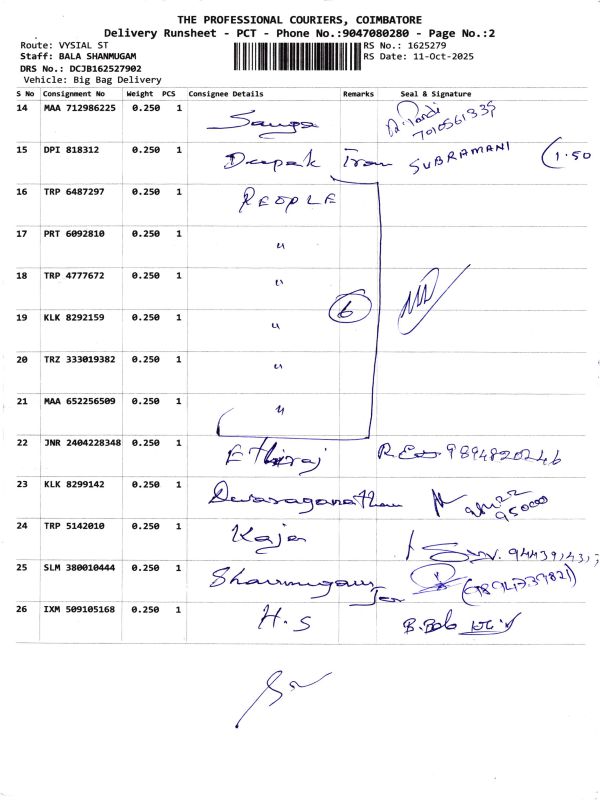 THE PROFESSIONAL COURIERS, COIMBATORE
Delivery Runsheet - PCT - Phone No.:9047080280 - Page No.:2
Route: VYSIAL ST
RS No.: 1625279
Staff: BALA SHANMUGAM
RS Date: 11-Oct-2025
DRS No.: DCJB162527902
Vehicle: Big Bag Delivery
S No Consignment No Weight PCS Consignee Details Remarks Seal & Signature
14 MAA 712986225 0.250 1
15 DPI 818312 0.250 1 Deepak SUBRAMANI 1.50
16 TRP 6487297 0.250 1 PEOPLE
17 PRT 6092810 0.250 1 "
18 TRP 4777672 0.250 1 "
19 KLK 8292159 0.250 1 " 6
20 TRZ 333019382 0.250 1 "
21 MAA 652256509 0.250 1 "
22 JNR 2404228348 0.250 1 Ethiraj 9894820246
23 KLK 8299142 0.250 1
24 TRP 5142010 0.250 1 Kaja
25 SLM 380010444 0.250 1
26 IXM 509105168 0.250 1 H.S